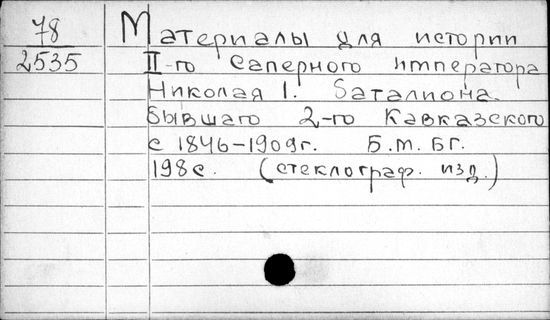 78
2535
Материалы для истории
II-го Саперного Императора
Николая I. Баталиона.
бывшаго 2-го Кавказского
с 1846-1909г. Б.м. Бг.
198с. (стеклограф. изд.)